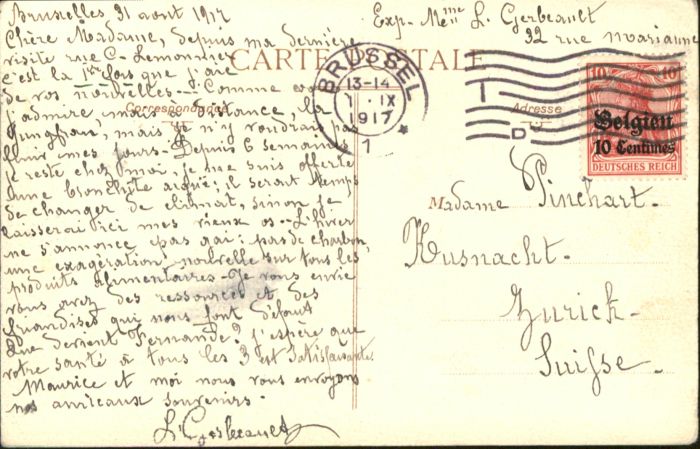 Bruxelles 31 août 1917
Chère Madame, depuis ma dernière
visite rue C. Lemonnier
c'est la 1re fois que j'aie
de vos nouvelles - Comme
j'admire, mais à distance, la
Jungfrau, mais je n'y voudrai pas
finir mes jours - Depuis 6 semaines
je reste chez moi, je me suis offerte
une bronchite aiguë; il serait temps
de changer de climat, sinon je
laisserai ici mes vieux os - L'hiver
ne s'annonce pas gai; pas de charbon,
une exagération nouvelle sur tous les
produits alimentaires - Je vous envie
vous avez des ressources et des
friandises qui nous font défaut
Que devient Fernande? J'espère que
votre santé à tous les 3 est satisfaisante
Maurice et moi nous vous envoyons
nos amicaux souvenirs.
L. Gerbeault
Exp - Mme L. Gerbeault
32 rue Marianne
CARTE POSTALE
Correspondance
Adresse
BRÜSSEL
13-14
1. IX
1917
1
10 10
Belgien
10 Centimes
DEUTSCHES REICH
Madame Pinchart.
Kusnacht.
Zurich.
Suisse.